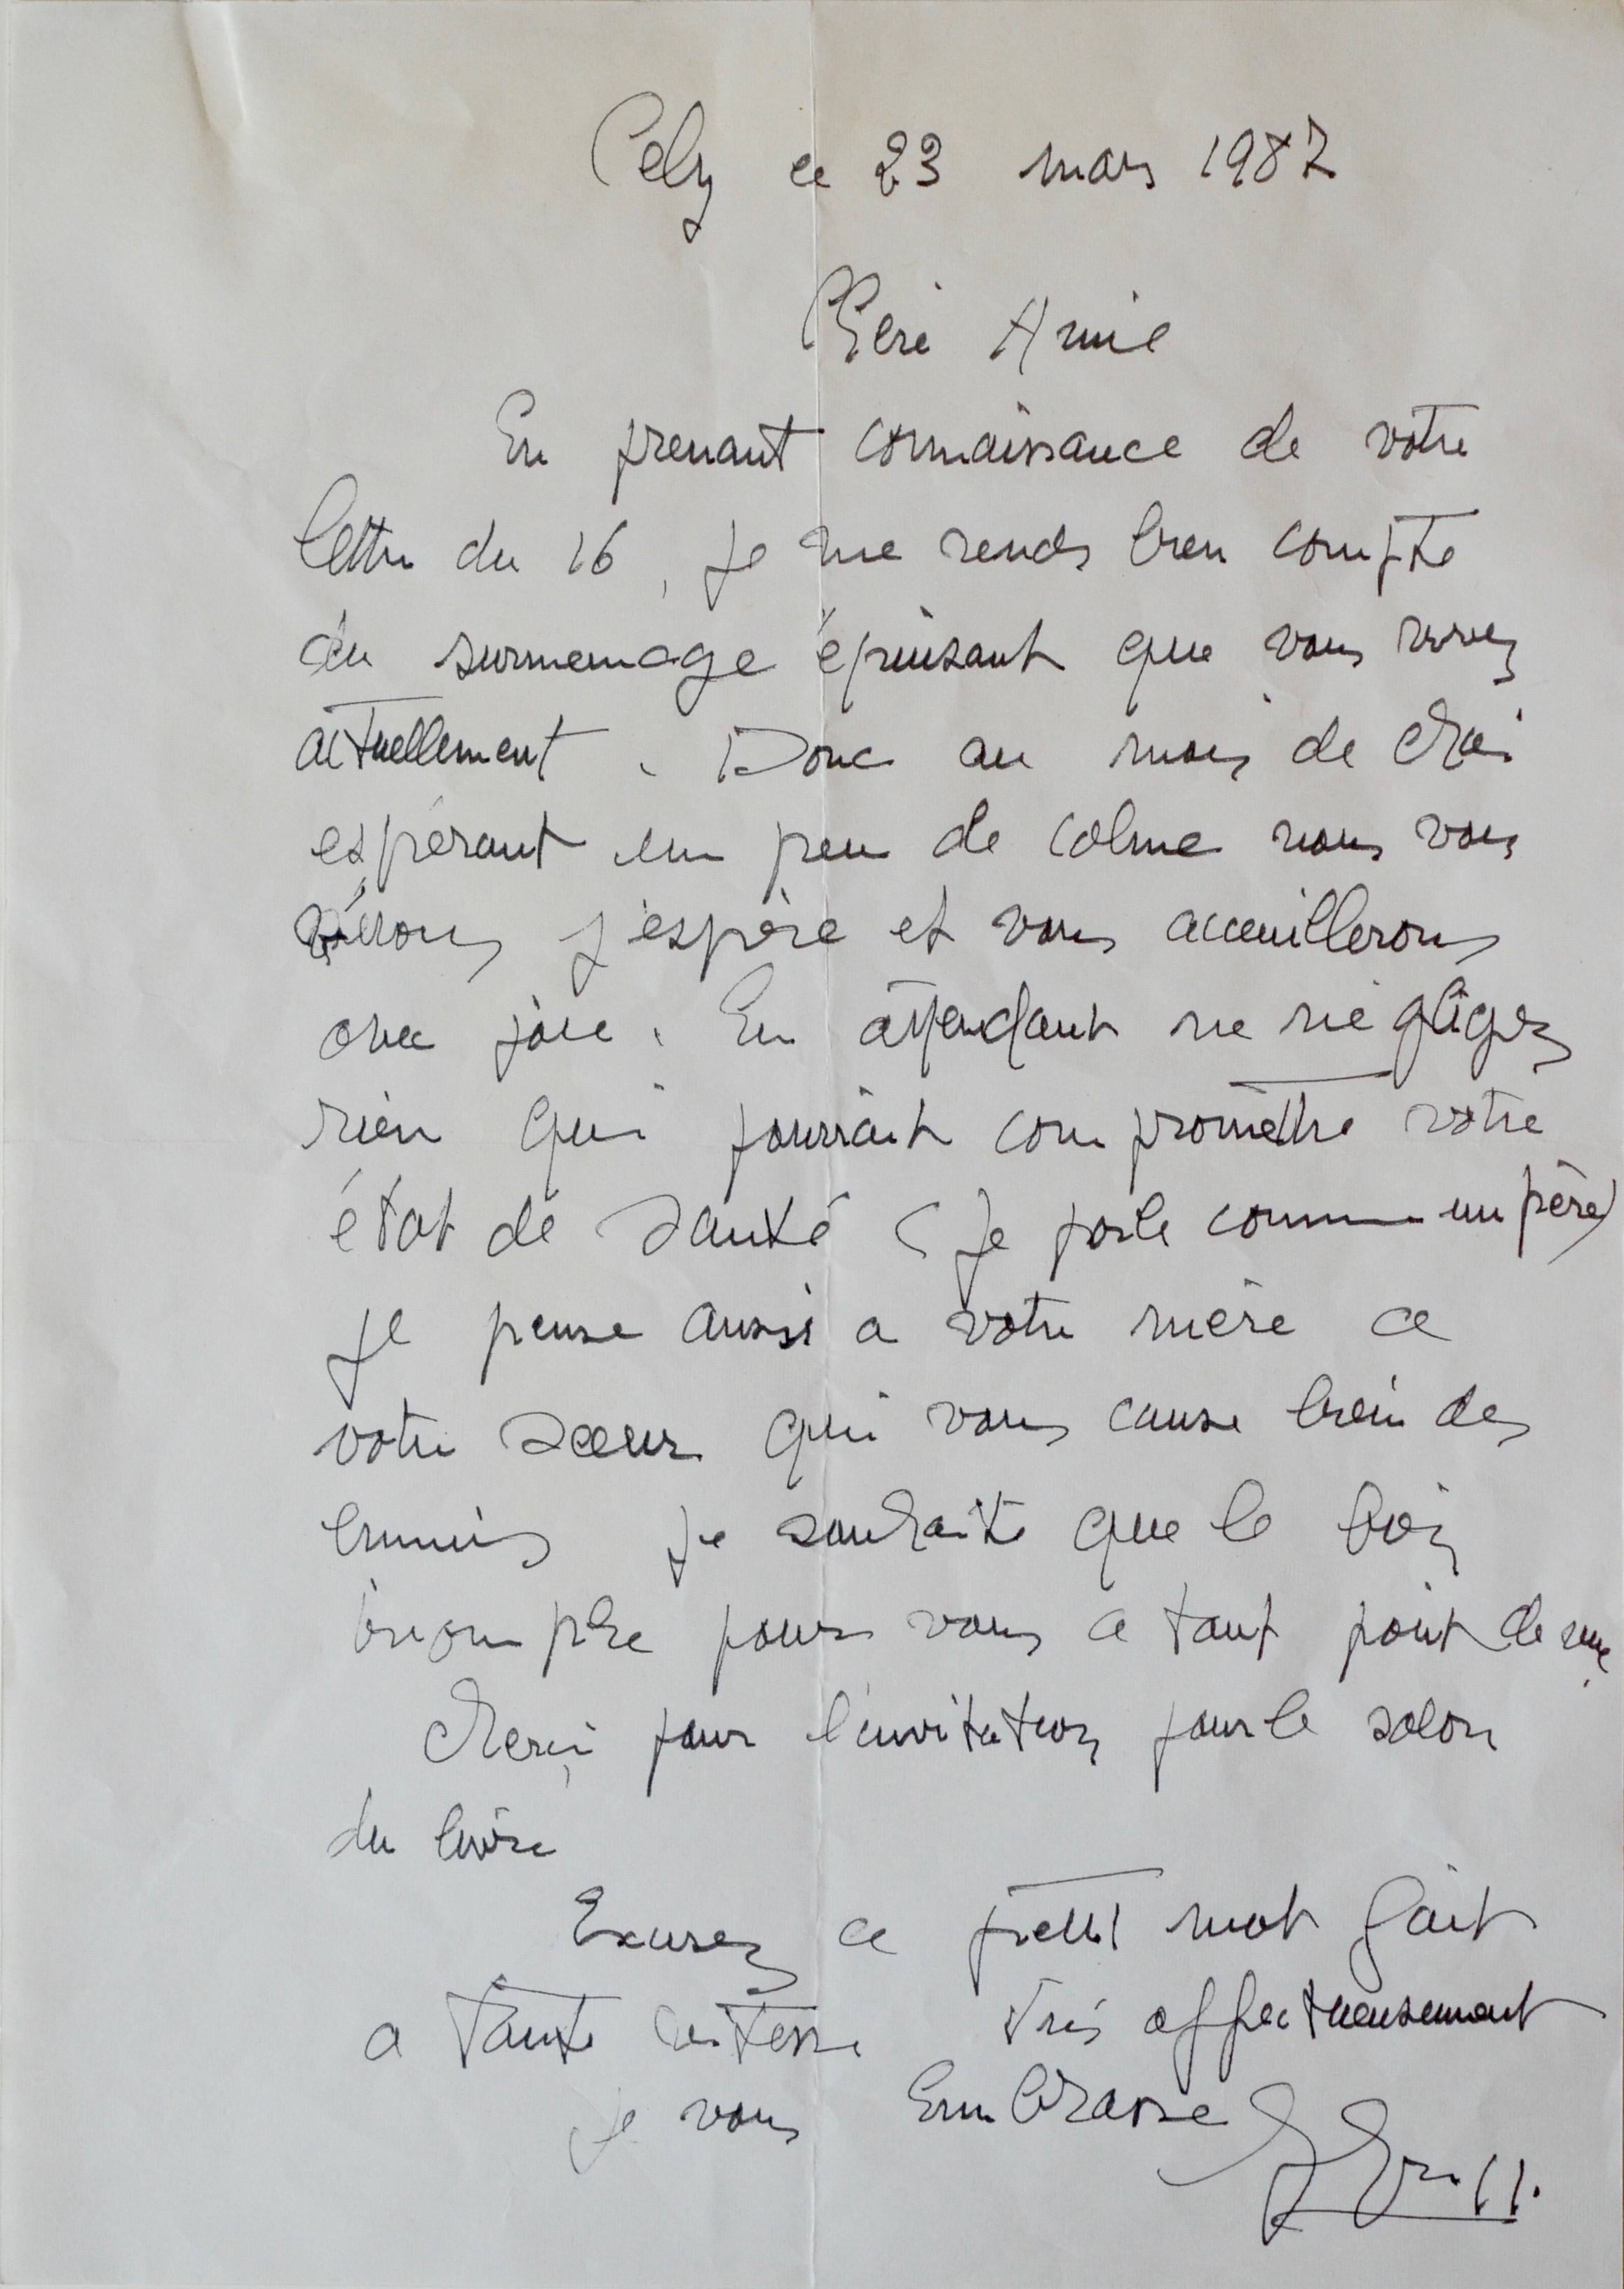 Cely ce 23 mars 1987
Chère Amie
En prenant connaissance de votre
lettre du 16, je me rends bien compte
du surmenage épuisant que vous vivez
actuellement. Donc au mois de Mai
espérant un peu de calme nous vous
j'espère et vous acceuillerons
avec joie. En attendant ne négligez
rien qui pourrait compromettre votre
état de santé (je parle comme un père)
je pense aussi a votre mère a
votre sœur qui vous cause bien des
ennuis je souhaite que le
pour vous a tout point de vue.
Merci pour l'invitation pour le salon
du livre
Excusez ce petit mot fait
a toute vitesse très affectueusement
je vous Embrasse